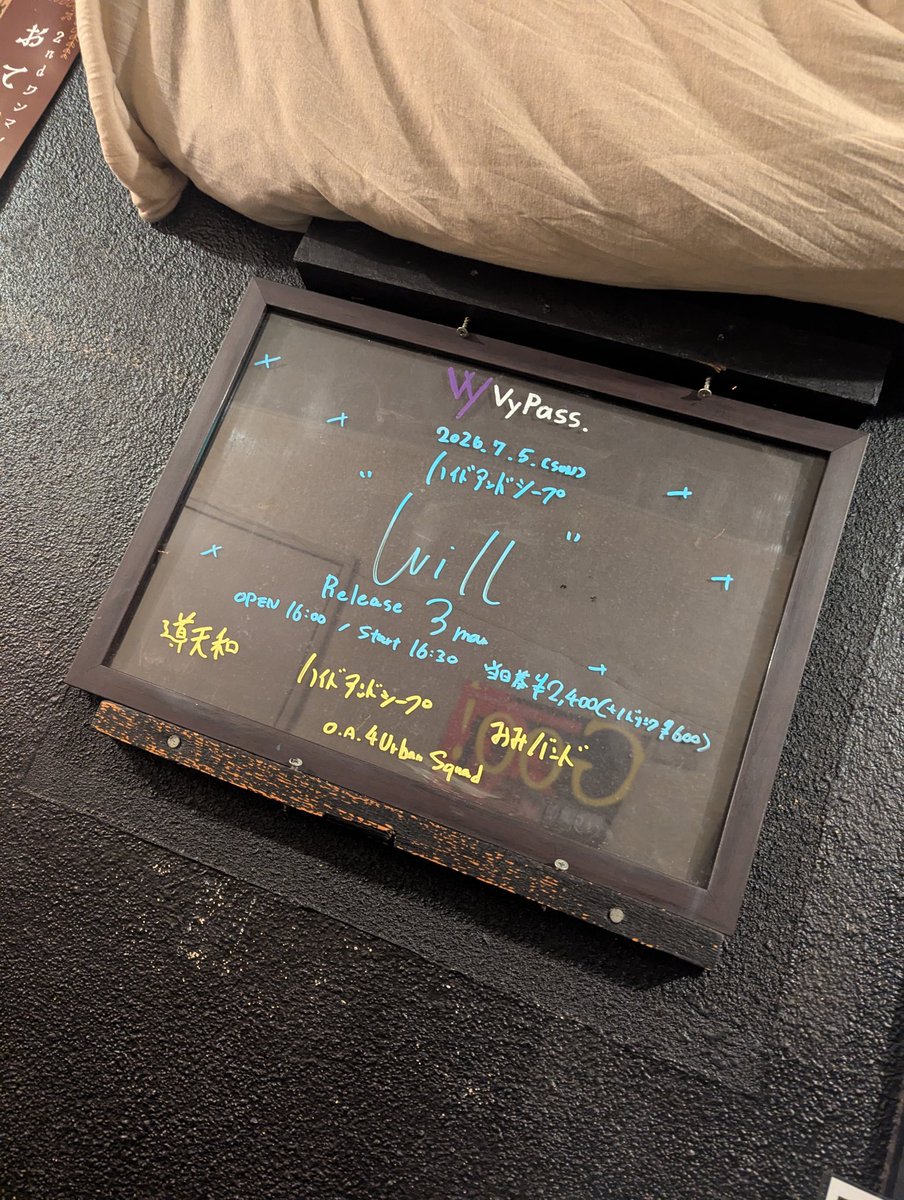 2ndワンマ
おて
VyPass.
2026.7.5.(SUN)
ハイドアンドシープ
"Will"
Release 3man
OPEN 16:00 / Start 16:30 当日券¥2,400(+1ドリンク¥600)
導天和
ハイドアンドシープ
おみバンド
O.A. 4Urban Squad